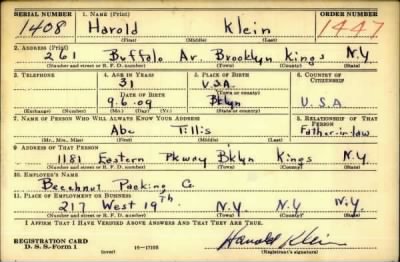 SERIAL NUMBER 1. NAME (Print) ORDER NUMBER
1408 Harold Klein 1447
(First) (Middle) (Last)
2. ADDRESS (Print)
261 Buffalo Av. Brooklyn Kings N.Y.
(Number and street or R. F. D. number) (Town) (County) (State)
3. TELEPHONE 4. AGE IN YEARS 5. PLACE OF BIRTH 6. COUNTRY OF CITIZENSHIP
31 U.S.A.
DATE OF BIRTH (Town or county)
9. 6. 09 Bklyn U.S.A
(Exchange) (Number) (Mo.) (Day) (Yr.) (State or country)
7. NAME OF PERSON WHO WILL ALWAYS KNOW YOUR ADDRESS 8. RELATIONSHIP OF THAT PERSON
Abe Tillis Father-in-law
(Mr., Mrs., Miss) (First) (Middle) (Last)
9. ADDRESS OF THAT PERSON
1181 Eastern Pkway Bklyn Kings N.Y.
(Number and street or R. F. D. number) (Town) (County) (State)
10. EMPLOYER'S NAME
Beechnut Packing Co
11. PLACE OF EMPLOYMENT OR BUSINESS
217 West 19th N.Y. N.Y. N.Y.
(Number and street or R. F. D. number) (Town) (County) (State)
I AFFIRM THAT I HAVE VERIFIED ABOVE ANSWERS AND THAT THEY ARE TRUE.
REGISTRATION CARD
D. S. S. Form 1 (over) Harold Klein
(Registrant's signature)